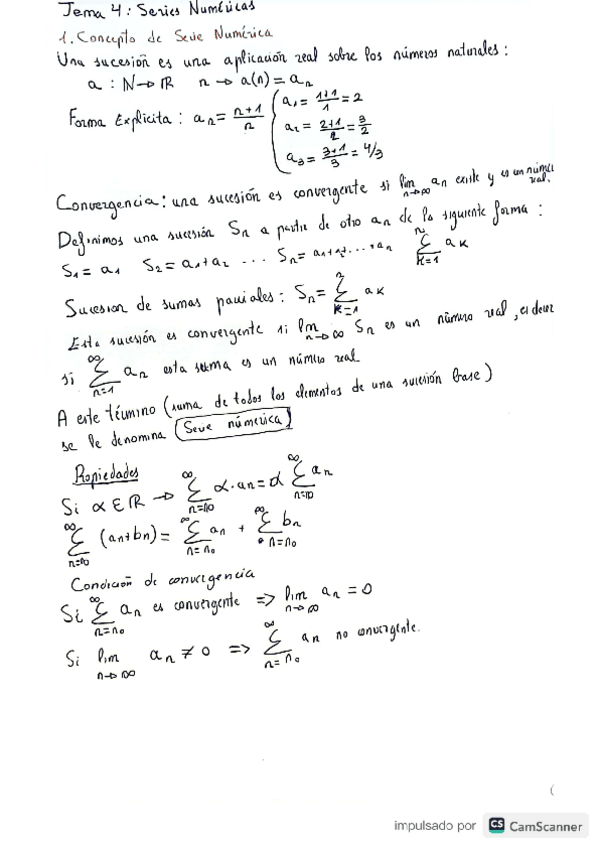 Tema 4: Series Numéricas
1. Concepto de Serie Numérica
Una sucesión es una aplicación real sobre los números naturales:
a : N → ℝ n → a(n) = aₙ
Forma Explicita : aₙ = (n+1)/n { a₁ = (1+1)/1 = 2
a₂ = (2+1)/2 = 3/2
a₃ = (3+1)/3 = 4/3
Convergencia: una sucesión es convergente si lim n→∞ aₙ existe y es un número real.
Definimos una sucesión Sₙ a partir de otro aₙ de la siguiente forma :
S₁ = a₁ S₂ = a₁+a₂ ... Sₙ = a₁+...+aₙ ∑ₖ₌₁ⁿ aₖ
Sucesion de sumas parciales : Sₙ = ∑ₖ₌₁ⁿ aₖ
Esta sucesión es convergente si lim n→∞ Sₙ es un número real, es decir
si ∑ₙ₌₁^∞ aₙ esta suma es un número real
A este término (suma de todos los elementos de una sucesión base)
se le denomina (Serie númerica)
Propiedades
Si α ∈ ℝ → ∑ₙ₌ₙ₀^∞ α·aₙ = α ∑ₙ₌ₙ₀^∞ aₙ
∑ₙ₌ₙ₀^∞ (aₙ+bₙ) = ∑ₙ₌ₙ₀^∞ aₙ + ∑ₙ₌ₙ₀^∞ bₙ
Condición de convergencia
Si ∑ₙ₌ₙ₀^∞ aₙ es convergente => lim n→∞ aₙ = 0
Si lim n→∞ aₙ ≠ 0 => ∑ₙ₌ₙ₀^∞ aₙ no convergente.
impulsado por CS CamScanner